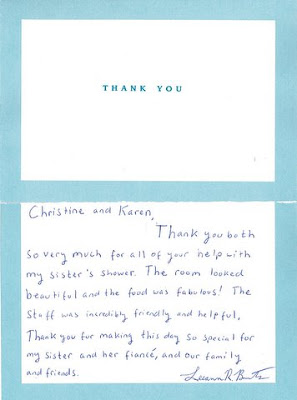 THANK YOU
Christine and Karen,
Thank you both
so very much for all of your help with
my sister's shower. The room looked
beautiful and the food was fabulous! The
staff was incredibly friendly and helpful.
Thank you for making this day so special for
my sister and her fiancé, and our family
and friends.